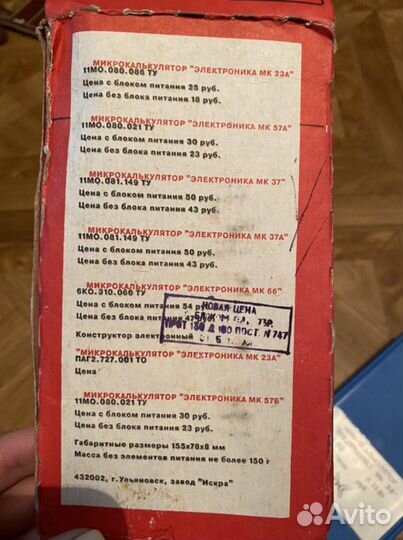 МИКРОКАЛЬКУЛЯТОР "ЭЛЕКТРОНИКА МК 23А"
11МО.080.086 ТУ
Цена с блоком питания 25 руб.
Цена без блока питания 18 руб.
МИКРОКАЛЬКУЛЯТОР "ЭЛЕКТРОНИКА МК 57А"
11МО.080.021 ТУ
Цена с блоком питания 30 руб.
Цена без блока питания 23 руб.
МИКРОКАЛЬКУЛЯТОР "ЭЛЕКТРОНИКА МК 37"
11МО.081.149 ТУ
Цена с блоком питания 50 руб.
Цена без блока питания 43 руб.
МИКРОКАЛЬКУЛЯТОР "ЭЛЕКТРОНИКА МК 37А"
11МО.081.149 ТУ
Цена с блоком питания 50 руб.
Цена без блока питания 43 руб.
МИКРОКАЛЬКУЛЯТОР "ЭЛЕКТРОНИКА МК 66"
6КО.310.066 ТУ
Цена с блоком питания 54 руб.
Цена без блока питания 47 руб.
НОВАЯ ЦЕНА
ПРОТ 180 Д 180 ПОСТ. N 747
Конструктор электронный
"МИКРОКАЛЬКУЛЯТОР "ЭЛЕКТРОНИКА МК 23А"
ПАГ2.727.001 ТО
Цена
МИКРОКАЛЬКУЛЯТОР "ЭЛЕКТРОНИКА МК 57Б"
11МО.080.021 ТУ
Цена с блоком питания 30 руб.
Цена без блока питания 23 руб.
Габаритные размеры 155х78х8 мм
Масса без элементов питания не более 150 г
432002, г.Ульяновск, завод "Искра"
Avito